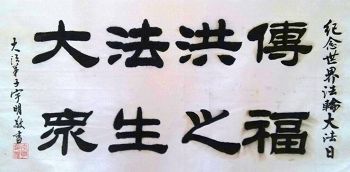 紀念世界法輪大法日
傳福
洪之
法生
大眾
大法弟子宇明敬書